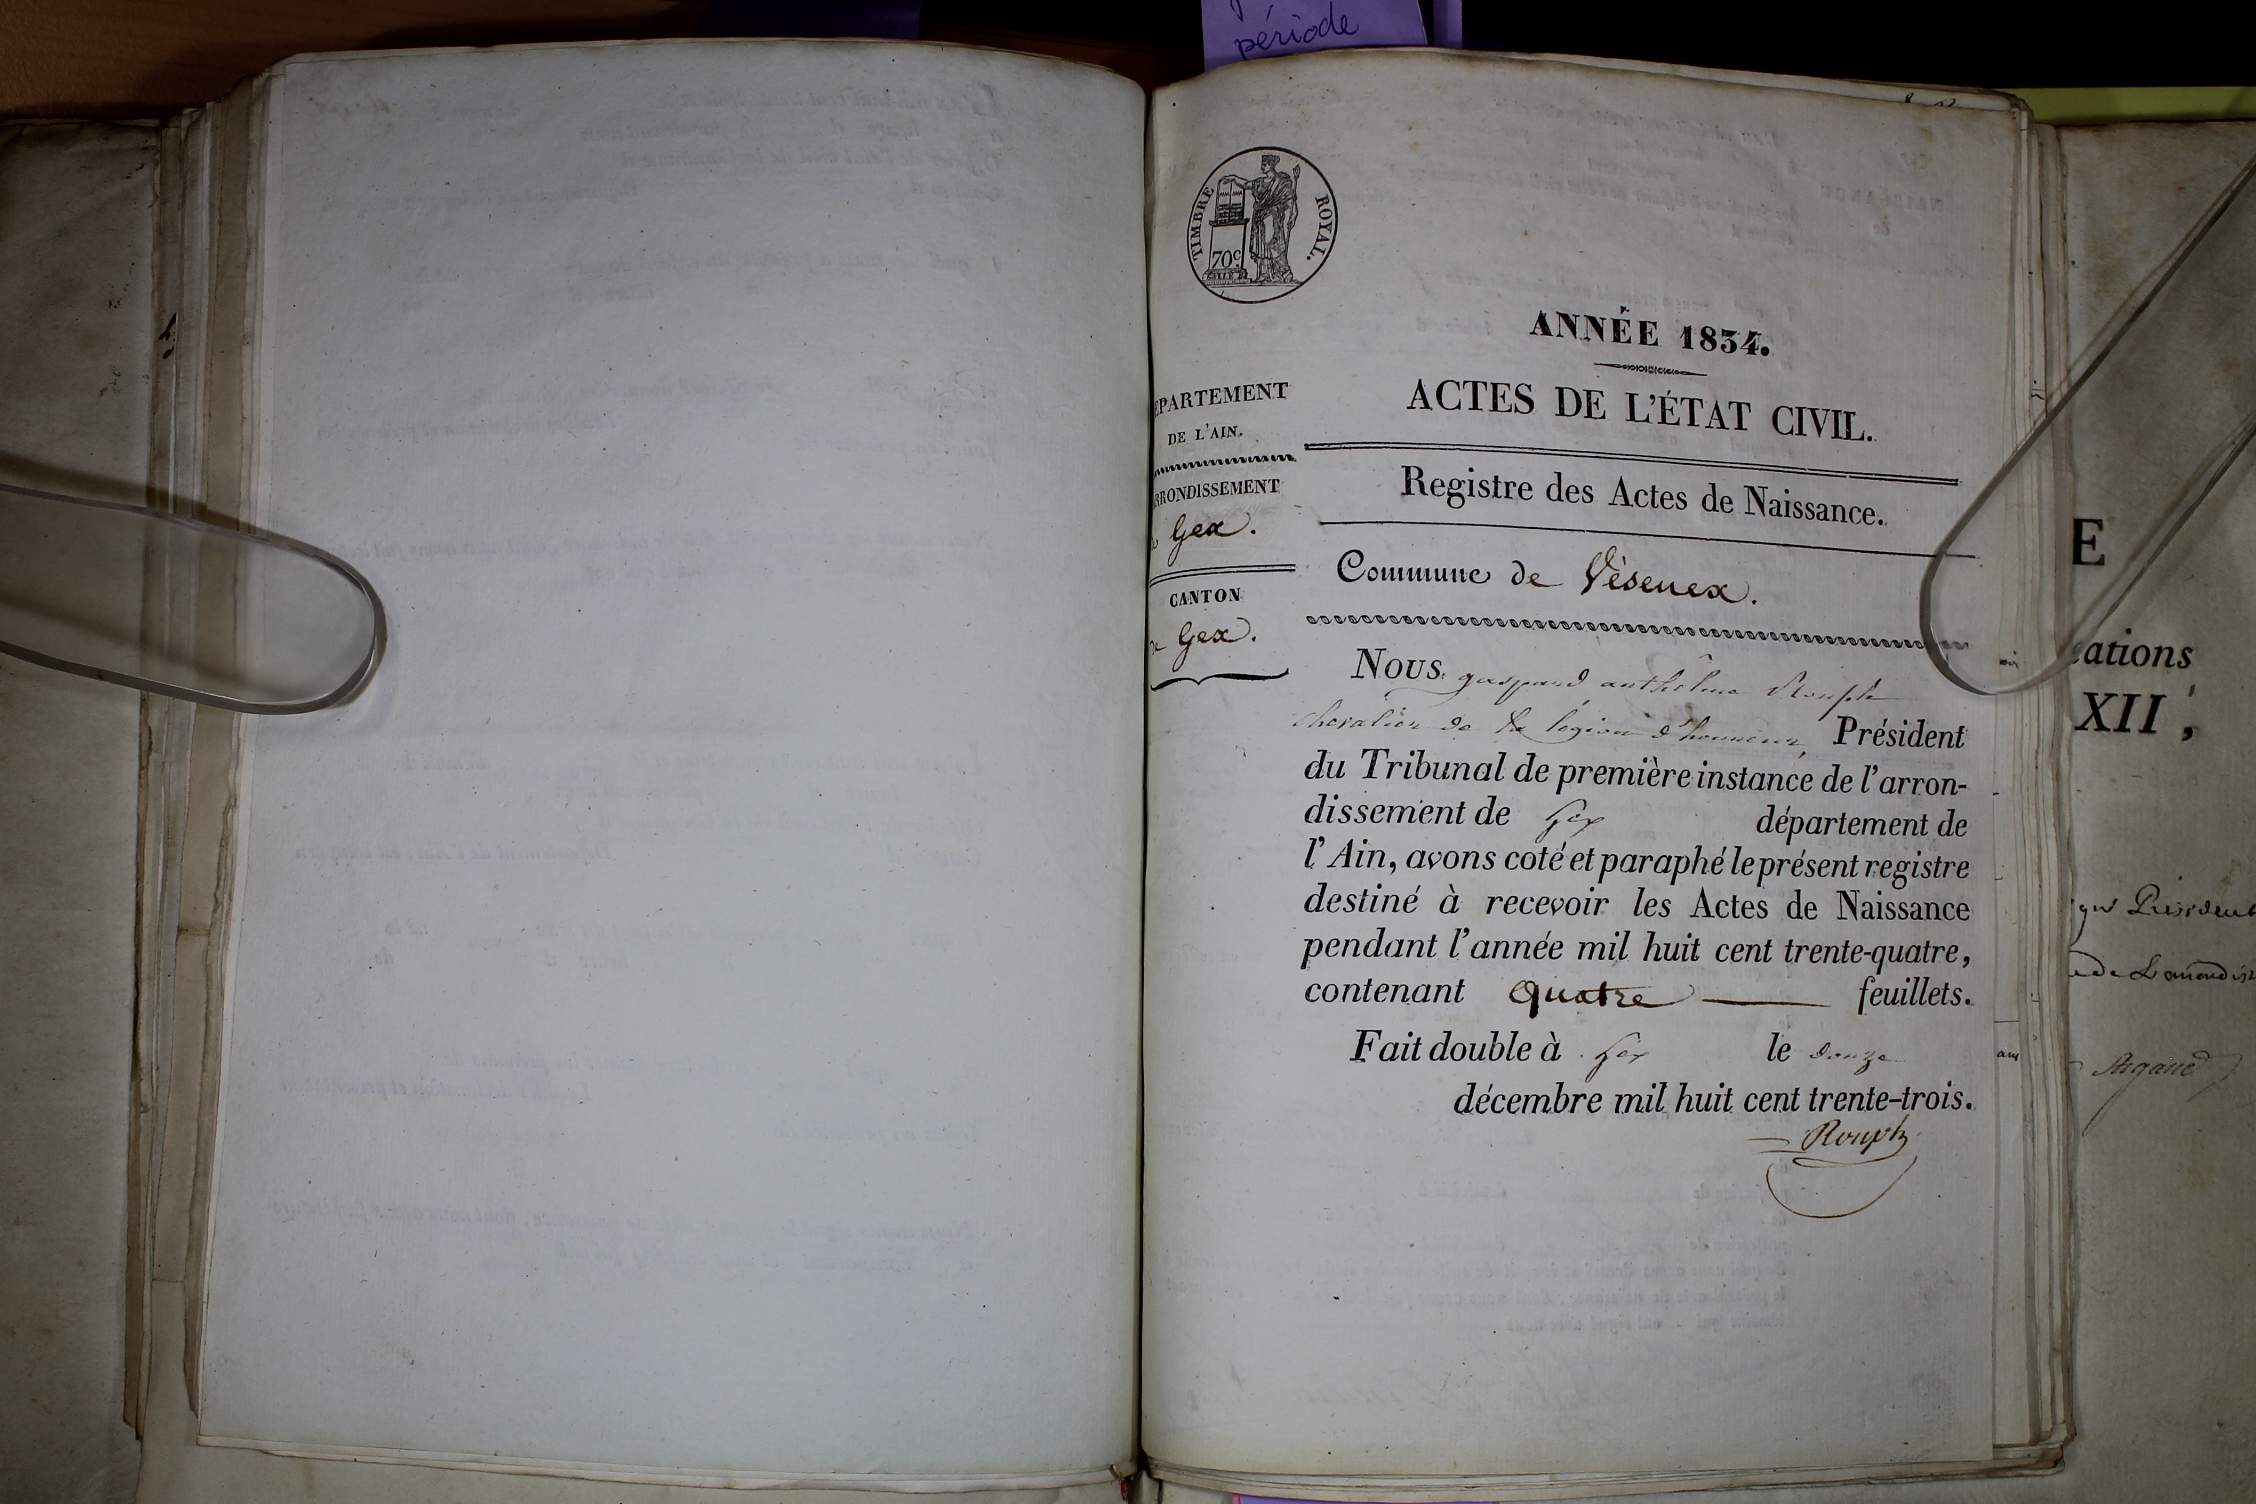 période
TIMBRE ROYAL.
70c
ANNÉE 1834.
ACTES DE L'ÉTAT CIVIL.
EPARTEMENT
DE L'AIN.
RRONDISSEMENT
Gex.
CANTON
Gex.
Registre des Actes de Naissance.
Commune de Vésenex.
Nous gaspard anthelme Rouph
chevalier de la légion d'honneur, Président
du Tribunal de première instance de l'arron-
dissement de Gex département de
l'Ain, avons coté et paraphé le présent registre
destiné à recevoir les Actes de Naissance
pendant l'année mil huit cent trente-quatre,
contenant quatre feuillets.
Fait double à Gex le douze
décembre mil huit cent trente-trois.
Rouph
E
cations
XII,
Président